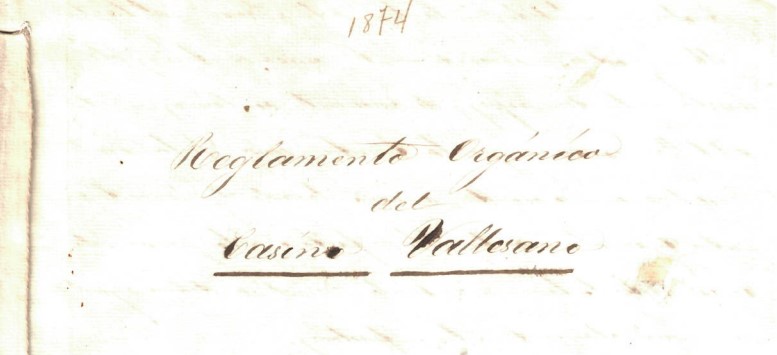 1874
Reglamento Orgánico
del
Casino Vallesano